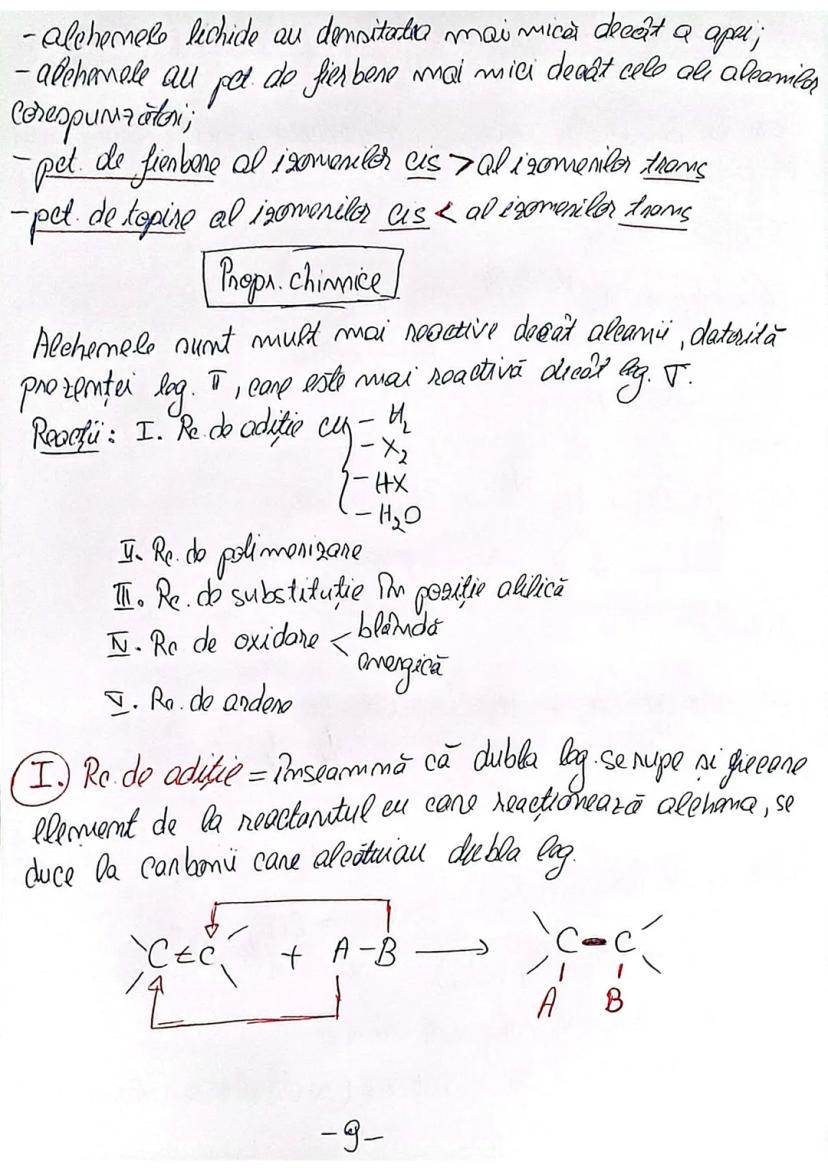 - alchenele lichide au densitatea mai mică decât a apei;
- alchenele au pct. de fierbere mai mici decât cele ale alcanilor
corespunzători;
- pct. de fierbere al izomerilor cis > al izomerilor trans
- pct. de topire al izomerilor cis < al izomerilor trans
Propr. chimice
Alchenele sunt mult mai reactive decât alcanii, datorită
prezenței leg. π, care este mai reactivă decât leg. σ.
Reacții: I. Rc. de adiție cu - H₂
- X₂
- HX
- H₂O
II. Rc. de polimerizare
III. Rc. de substituție în poziție alilică
IV. Rc. de oxidare < blândă
energică
V. Rc. de ardere
I. Rc. de adiție = înseamnă că dubla leg. se rupe și fiecare
element de la reactantul cu care reacționează alchena, se
duce la carbonii care alcătuiau dubla leg.
C=C + A-B → C-C
A B
-9-